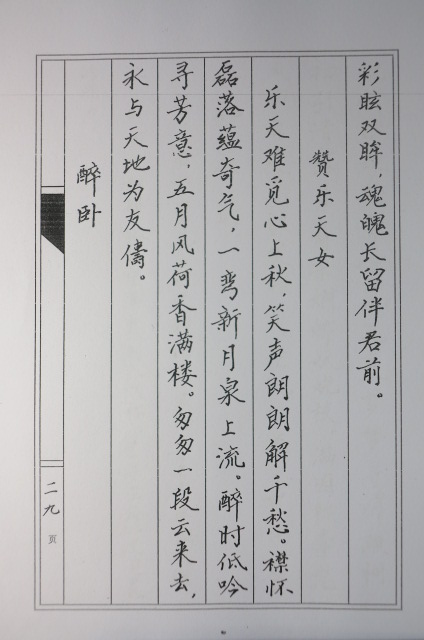 彩眩双眸，魂魄长留伴君前。
赞乐天女
乐天难觅心上秋，笑声朗朗解千愁。襟怀
磊落蕴奇气，一弯新月泉上流。醉时低吟
寻芳意，五月风荷香满楼。匆匆一段云来去，
永与天地为友俦。
醉卧
二九页